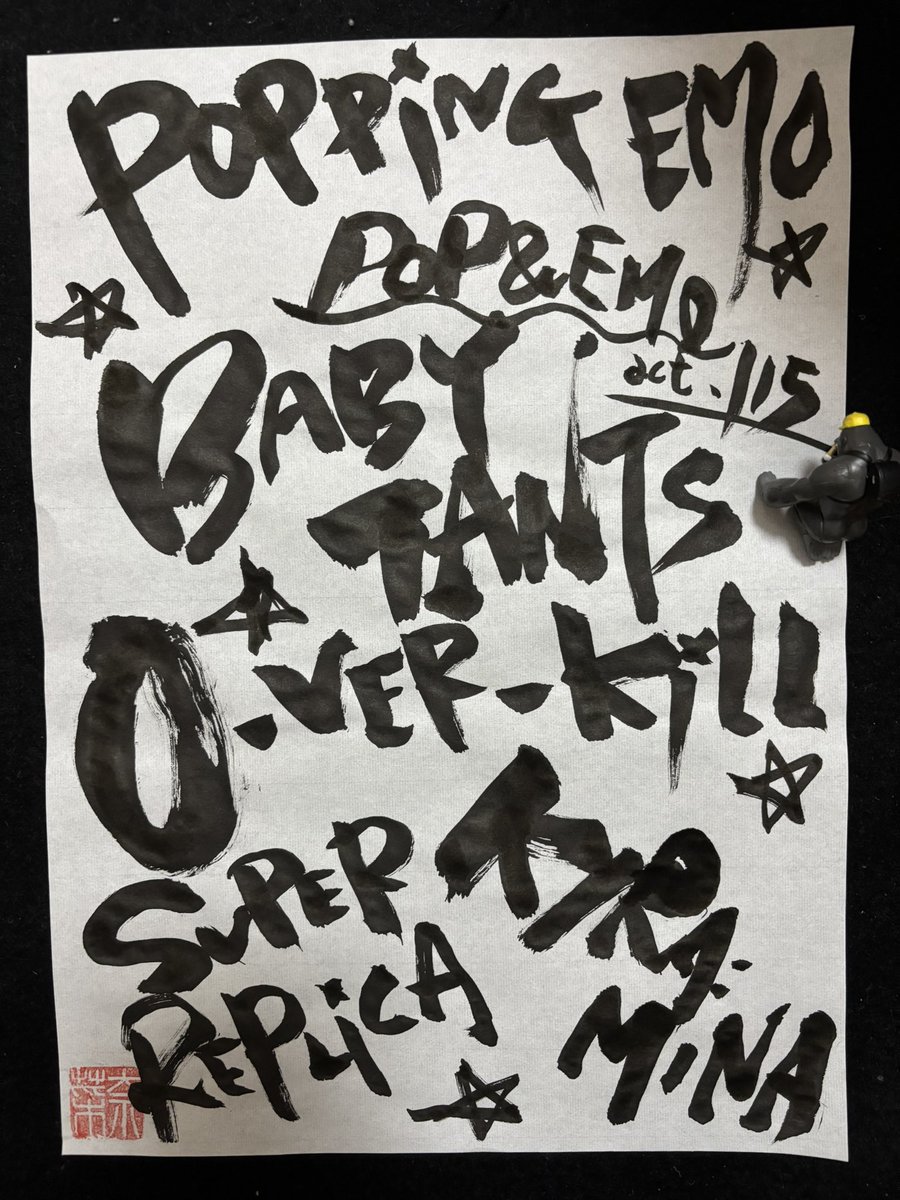 POPPiNG EMO
POP&EMO
act.115
BABY
TANTS
O-VER-Kill
SUPER
REPLiCA
TYRA.
MiNA